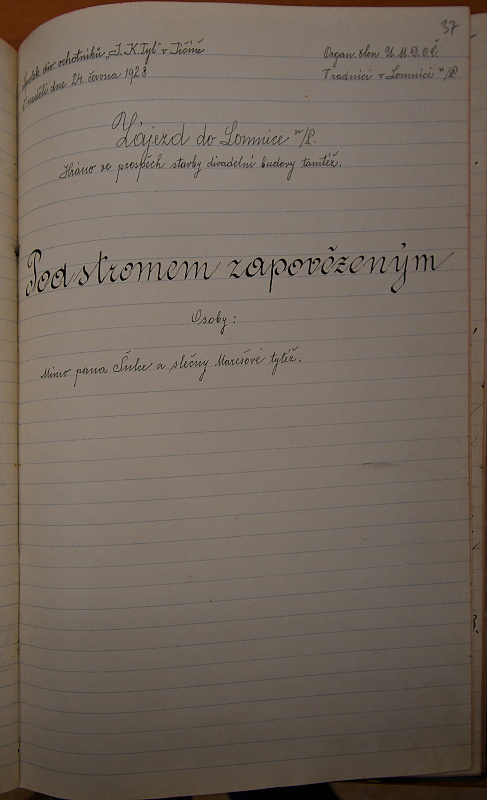 37
Spolek div. ochotníků „J. K. Tyl" v Jičíně
V neděli dne 24. června 1928
Organ. člen Ú. M. D. O. Č.
v Lomnici n/P.
Zájezd do Lomnice n/P.
Hráno ve prospěch stavby divadelní budovy tamtéž.
Pod stromem zapovězeným
Osoby:
Mimo pana Šulce a slečny Marešové tytéž.